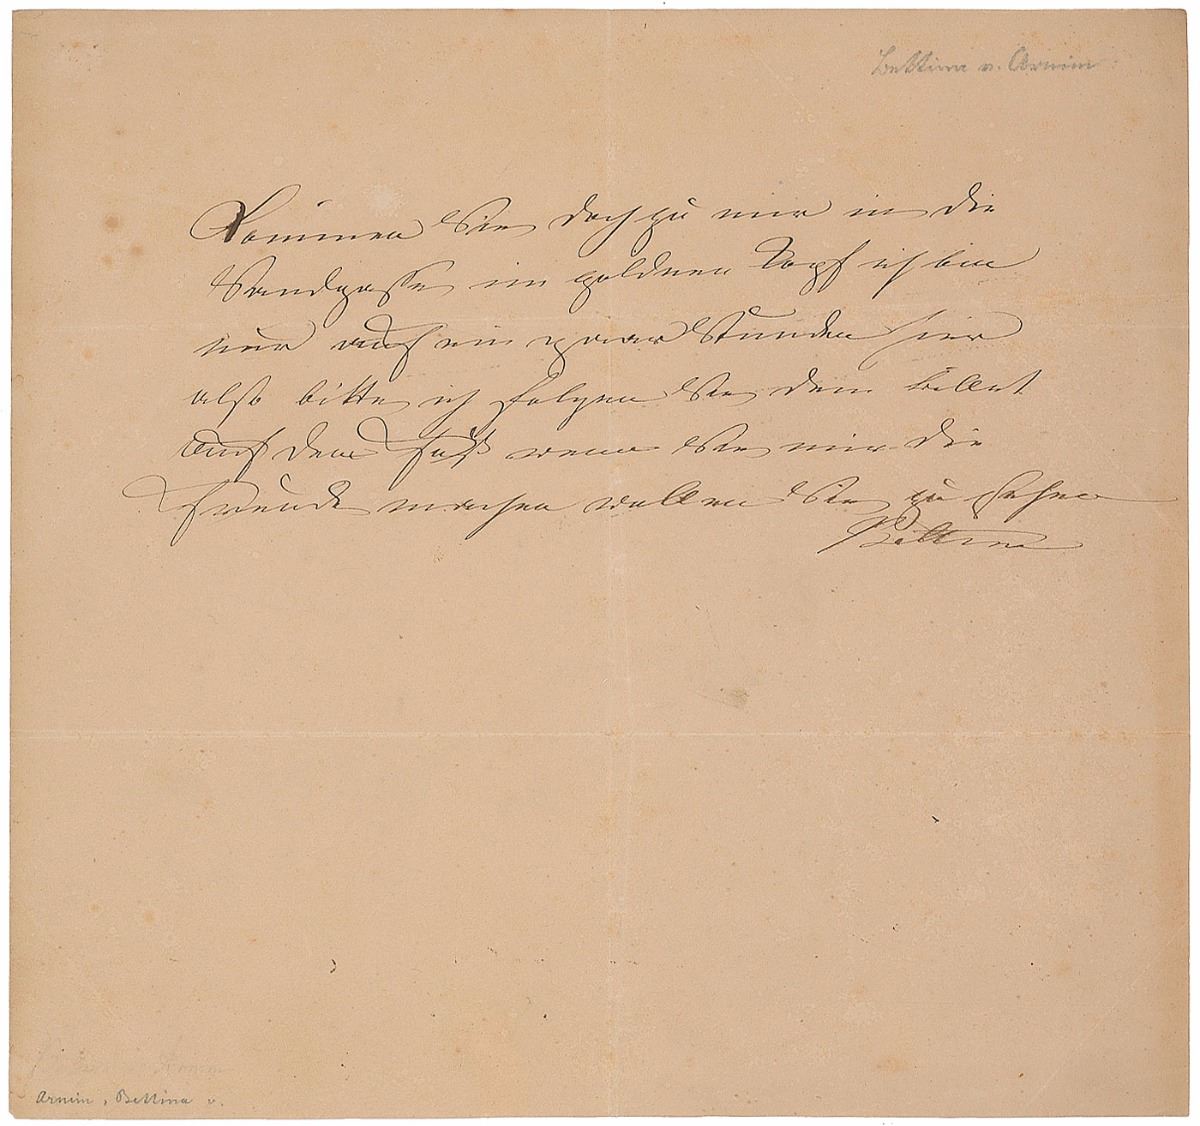 Bettina v. Arnim
Kommen Sie doch zu mir in die
Sandgasse im goldnen Kopf ich bin
nur auf ein paar Stunden hier
also bitte ich folgen Sie dem Billet
auf dem Fuß wenn Sie mir die
Freude machen wollen Sie zu sehen
Bettine
Arnim
Arnim, Bettina v.